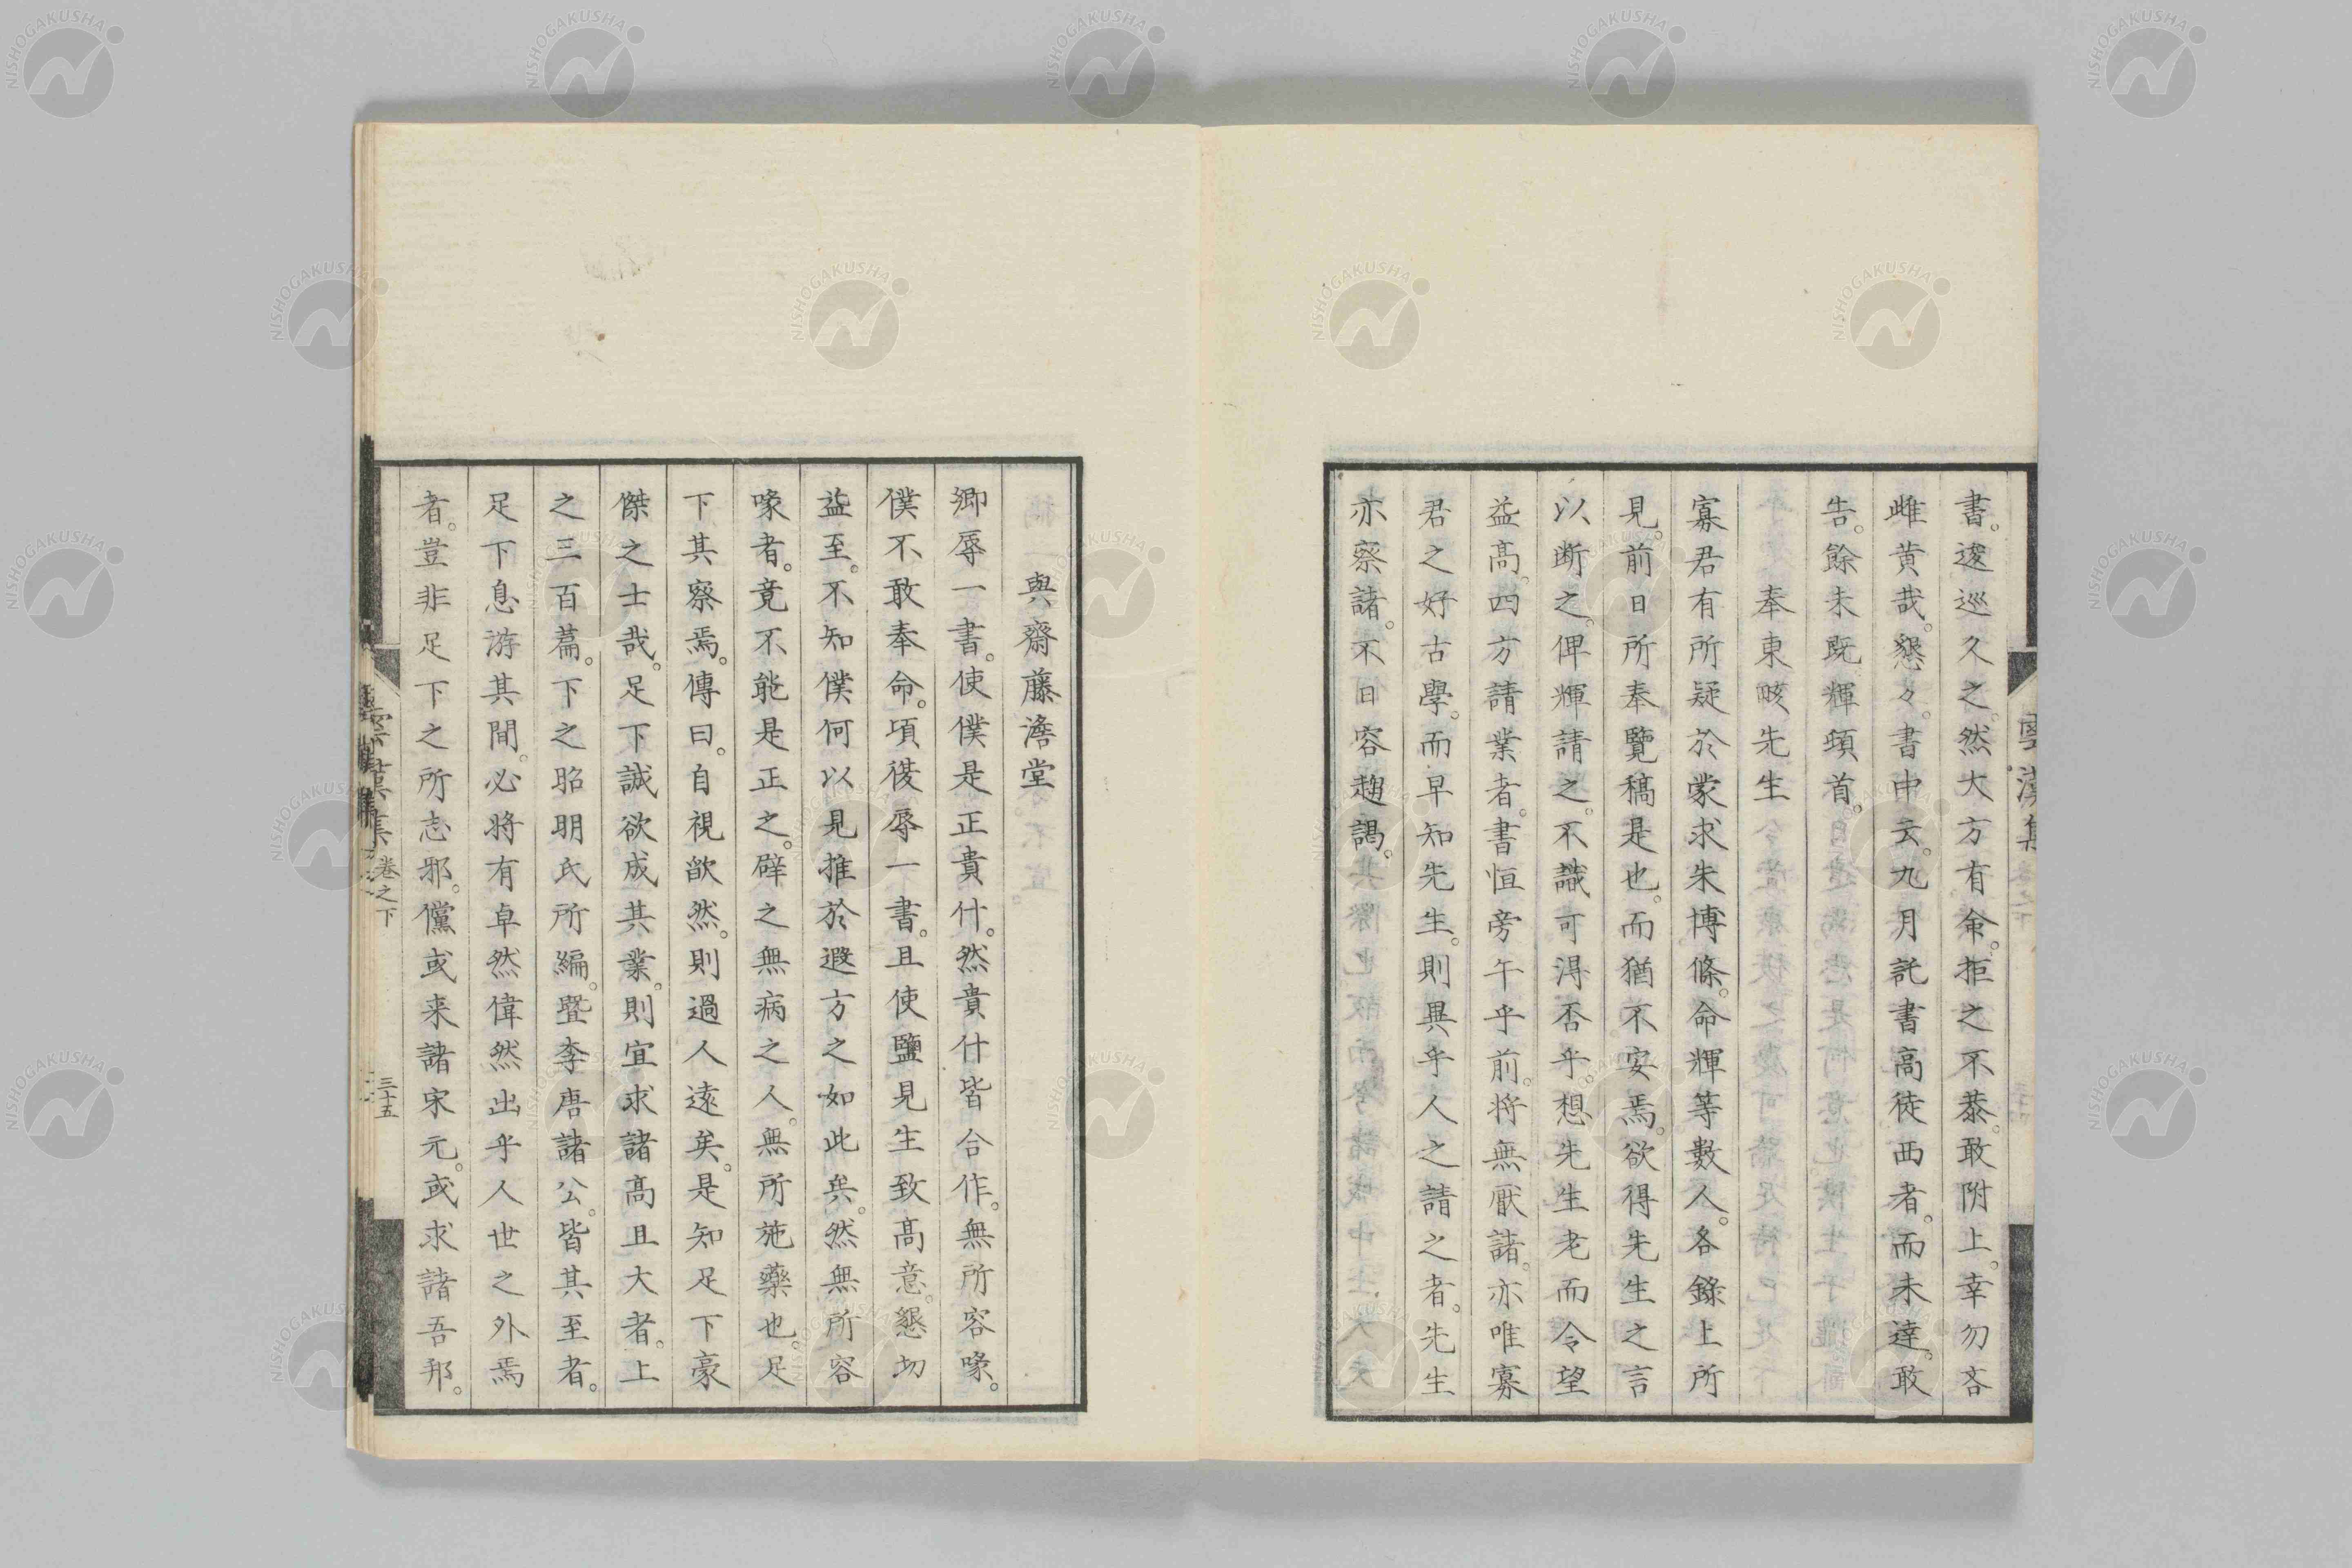 書。逡巡久之。然大方有命。拒之不恭。敢附上。幸勿吝
雌黄哉。懇々。書中云。九月託書高徒西者。而未達。敢
告。餘未既輝頓首。
奉東畡先生
寡君有所疑於蒙求朱博條。命輝等數人。各錄上所
見。前日所奉覽稿是也。而猶不安焉。欲得先生之言
以断之。俾輝請之。不識可淂否乎想先生老而令望
益髙。四方請業者。書恒旁午乎前。将無厭諸。亦唯寡
君之好古學。而早知先生。則異乎人之請之者。先生
亦察諸。不日容趨謁。
與齋藤澹堂
卿辱一書。使僕是正貴什。然貴什皆合作。無所容喙。
僕不敢奉命。項復辱一書。且使鹽見生致髙意。懇切
益至。不知僕何以見推於遐方之如此矣。然無所容
喙者。竟不能是正之。辟之無病之人。無所施藥也。足
下其察焉。傳曰。自視欿然。則過人遠矣。是知足下豪
傑之士哉。足下誠欲成其業。則宜求諸髙且大者。上
之三百篇。下之昭明氏所編。曁李唐諸公。皆其至者。
足下息游其間。必将有卓然偉然出乎人世之外焉
者。豈非足下之所志邪。儻或来諸宋元。或求諸吾邦。
漢集
漢集 卷之下 三十五
NISHOGAKUSHA